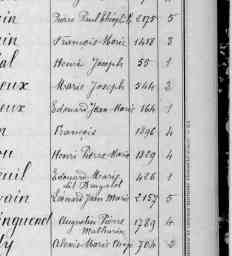 in Pierre Paul 2175 5
in François Marie 1418 3
al Henri Joseph 55 1
eux Marie Joseph 544 2
eux Edouard Jean Marie 164 1
n François 1896 4
ou Henri Pierre Marie 1829 4
euil Edouard Marie 426 1
dit
vain Léonard Jean Marie 2157 5
inquenel Augustin Pierre 1789 4
Mathurin
ly Alexis Marie 704 2